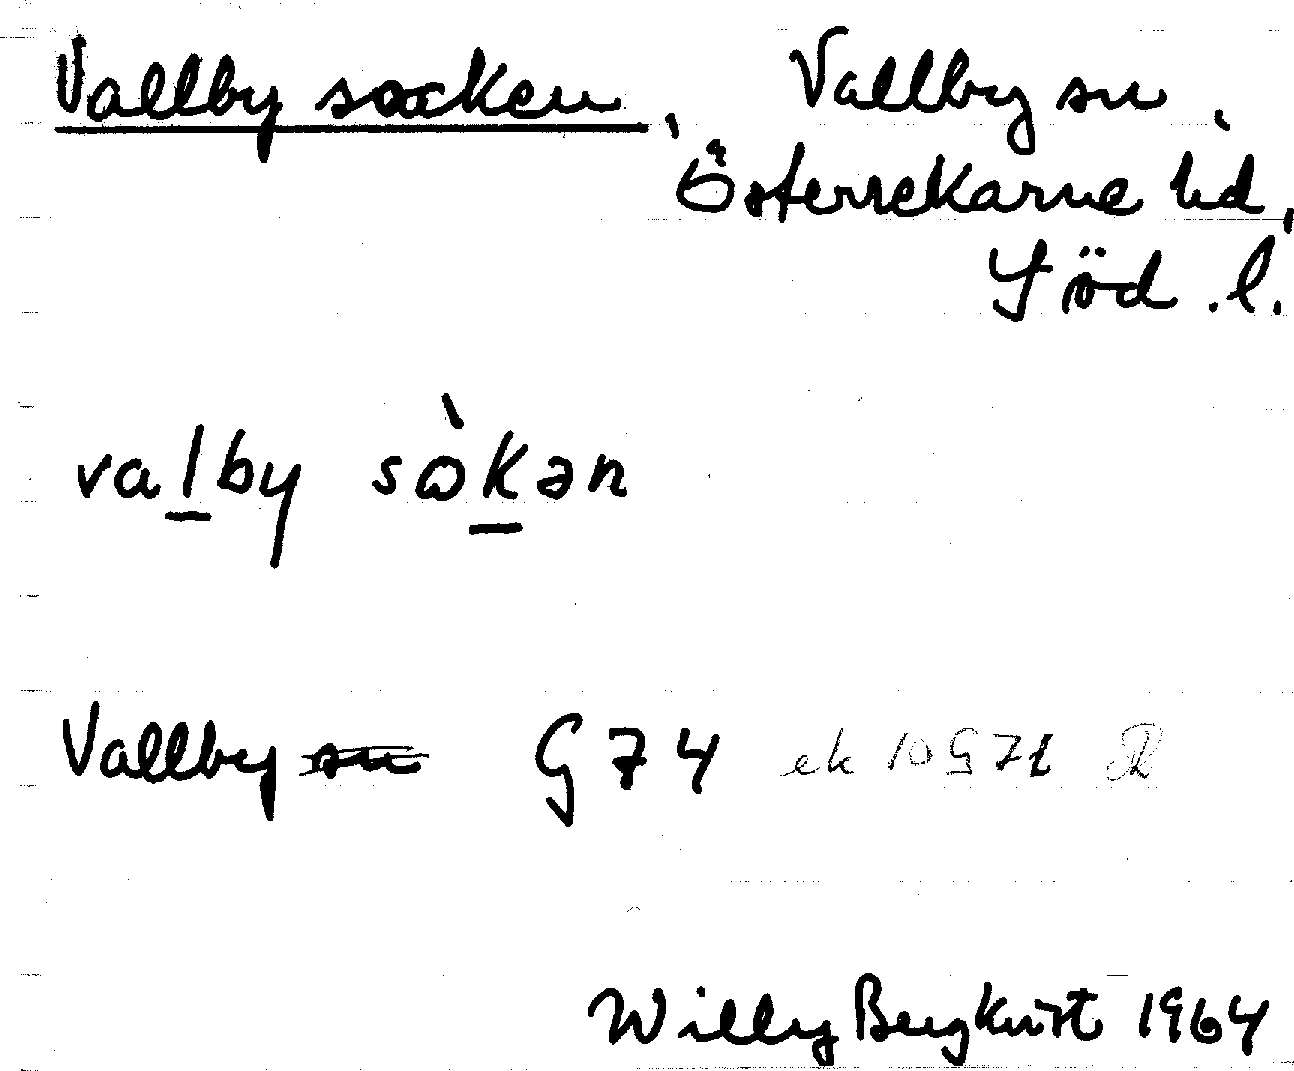 Vallby socken, Vallby sn,
Österrekarne hd,
Söd.l.
valby sòkən
Vallby sn G 74 ek 10G7f
Willy Bergkvist 1964